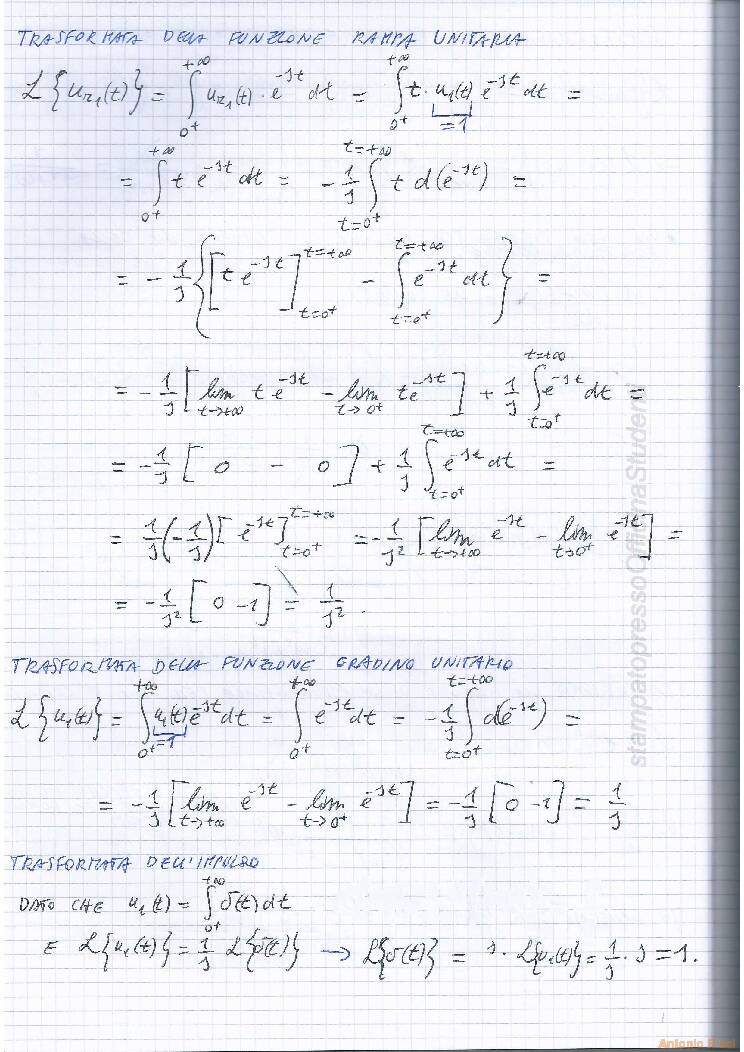 TRASFORMATA DELLA FUNZIONE RAMPA UNITARIA
ℒ{u_{r1}(t)} = ∫_{0⁺}^{+∞} u_{r1}(t)·e^{-st} dt = ∫_{0⁺}^{+∞} t·u₁(t) e^{-st} dt =
=1
= ∫_{0⁺}^{+∞} t e^{-st} dt = -1/s ∫_{t=0⁺}^{t=+∞} t d(e^{-st}) =
= -1/s { [t e^{-st}]_{t=0⁺}^{t=+∞} - ∫_{t=0⁺}^{t=+∞} e^{-st} dt } =
= -1/s [ lim_{t→+∞} t e^{-st} - lim_{t→0⁺} t e^{-st} ] + 1/s ∫_{t=0⁺}^{t=+∞} e^{-st} dt =
= -1/s [ 0 - 0 ] + 1/s ∫_{t=0⁺}^{t=+∞} e^{-st} dt =
= 1/s (-1/s) [ e^{-st} ]_{t=0⁺}^{t=+∞} = -1/s² [ lim_{t→+∞} e^{-st} - lim_{t→0⁺} e^{-st} ] =
= -1/s² [ 0 - 1 ] = 1/s² .
TRASFORMATA DELLA FUNZIONE GRADINO UNITARIO
ℒ{u₁(t)} = ∫_{0⁺}^{+∞} u₁(t) e^{-st} dt = ∫_{0⁺}^{+∞} e^{-st} dt = -1/s ∫_{t=0⁺}^{t=+∞} d(e^{-st}) =
=1
= -1/s [ lim_{t→+∞} e^{-st} - lim_{t→0⁺} e^{-st} ] = -1/s [ 0 - 1 ] = 1/s
TRASFORMATA DELL'IMPULSO
DATO CHE u₁(t) = ∫_{0⁺}^{+∞} δ(t) dt
E ℒ{u₁(t)} = 1/s ℒ{δ(t)} → ℒ{δ(t)} = s·ℒ{u₁(t)} = 1/s · s = 1.
stampatopressoOfficinaStudenti
Antonio